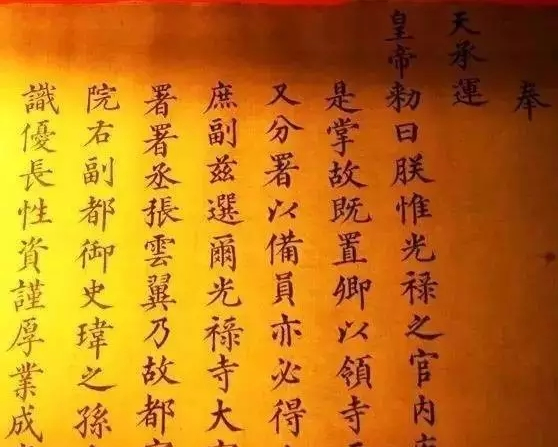 奉
天承運
皇帝勅曰朕惟光禄之官内
是掌故既置卿以領寺
又分署以備員亦必得
庶副兹選爾光禄寺大
署署丞張雲翼乃故都
院右副都御史瑋之孫
識優長性資謹厚業成